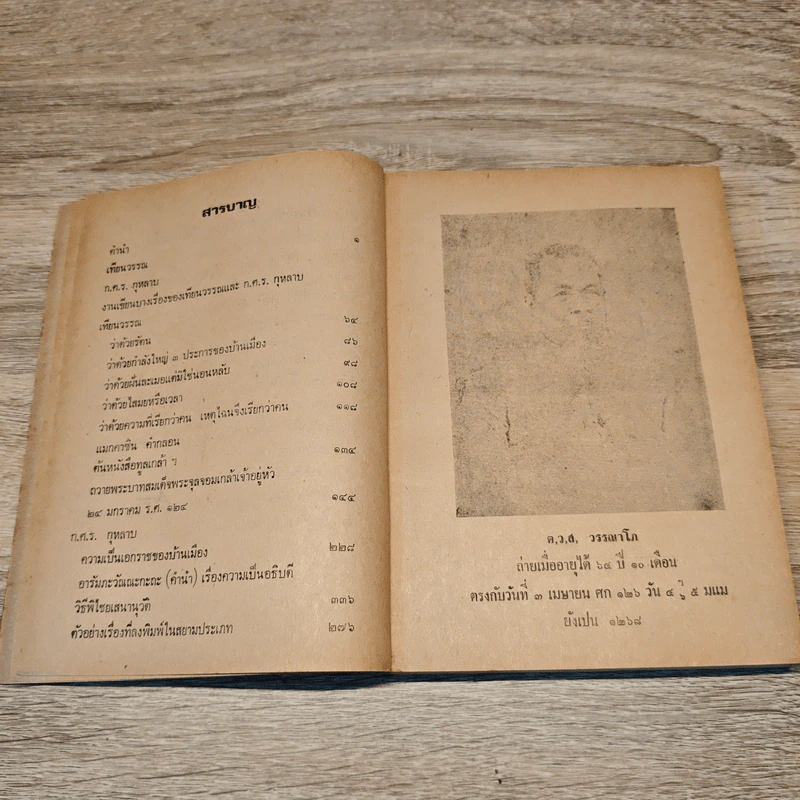 สารบาญ
คำนำ ๑
เทียนวรรณ
ก.ศ.ร. กุหลาบ
งานเขียนบางเรื่องของเทียนวรรณและ ก.ศ.ร. กุหลาบ
เทียนวรรณ ๖๔
ว่าด้วยรัตน ๘๖
ว่าด้วยกำลังใหญ่ ๓ ประการของบ้านเมือง ๙๘
ว่าด้วยฝันละเมอแต่มิใช่นอนหลับ ๑๐๘
ว่าด้วยไสมยหรือเวลา ๑๑๘
ว่าด้วยความที่เรียกว่าคน เหตุไฉนจึงเรียกว่าคน
แมกคาซิน คำกลอน ๑๓๔
ต้นหนังสือทูลเกล้า ฯ
ถวายพระบาทสมเด็จพระจุลจอมเกล้าเจ้าอยู่หัว
๒๔ มกราคม ร.ศ. ๑๒๔ ๑๔๕
ก.ศ.ร. กุหลาบ
ความเป็นเอกราชของบ้านเมือง ๒๒๘
อารัมภะวัณณะกะถะ (คำนำ) เรื่องความเป็นอธิบดี
วิธีพิไชยเสนานุวัติ ๓๓๖
ตัวอย่างเรื่องที่ลงพิมพ์ในสยามประเภท ๒๗๖
ต,ว,ส, วรรณาโภ
ถ่ายเมื่ออายุได้ ๖๔ ปี ๑๐ เดือน
ตรงกับวันที่ ๓ เมษายน ศก ๑๒๖ วัน ๔ ๖ ๕ มแม
ยังเปน ๑๒๖๘